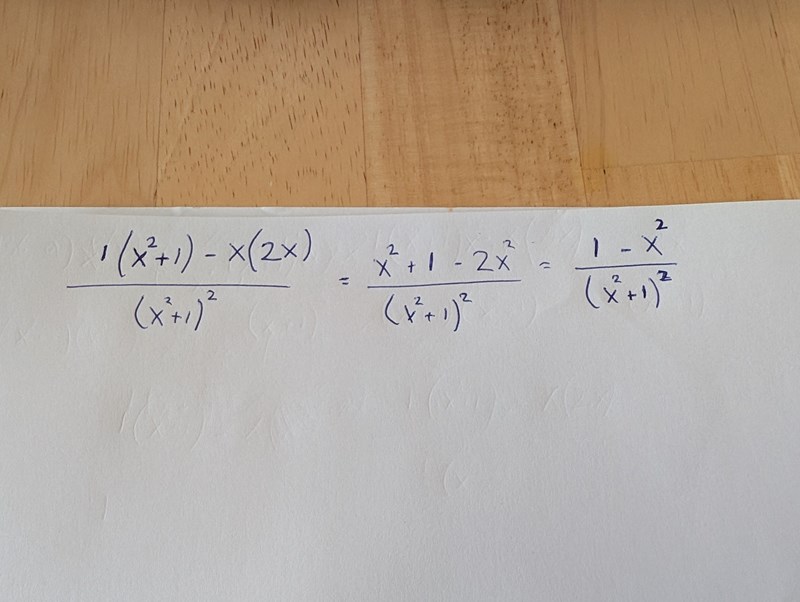 1(x²+1) - x(2x) / (x²+1)² = x² + 1 - 2x² / (x²+1)² = 1 - x² / (x²+1)²